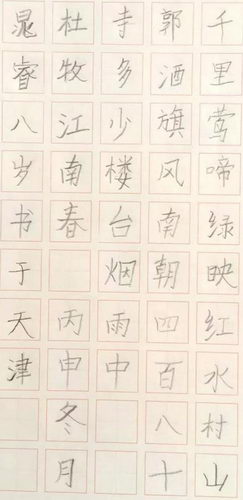 千里莺啼绿映红水村山
郭酒旗风南朝四百八十
寺多少楼台烟雨中
杜牧江南春 丙申冬月
晁睿八岁书于天津